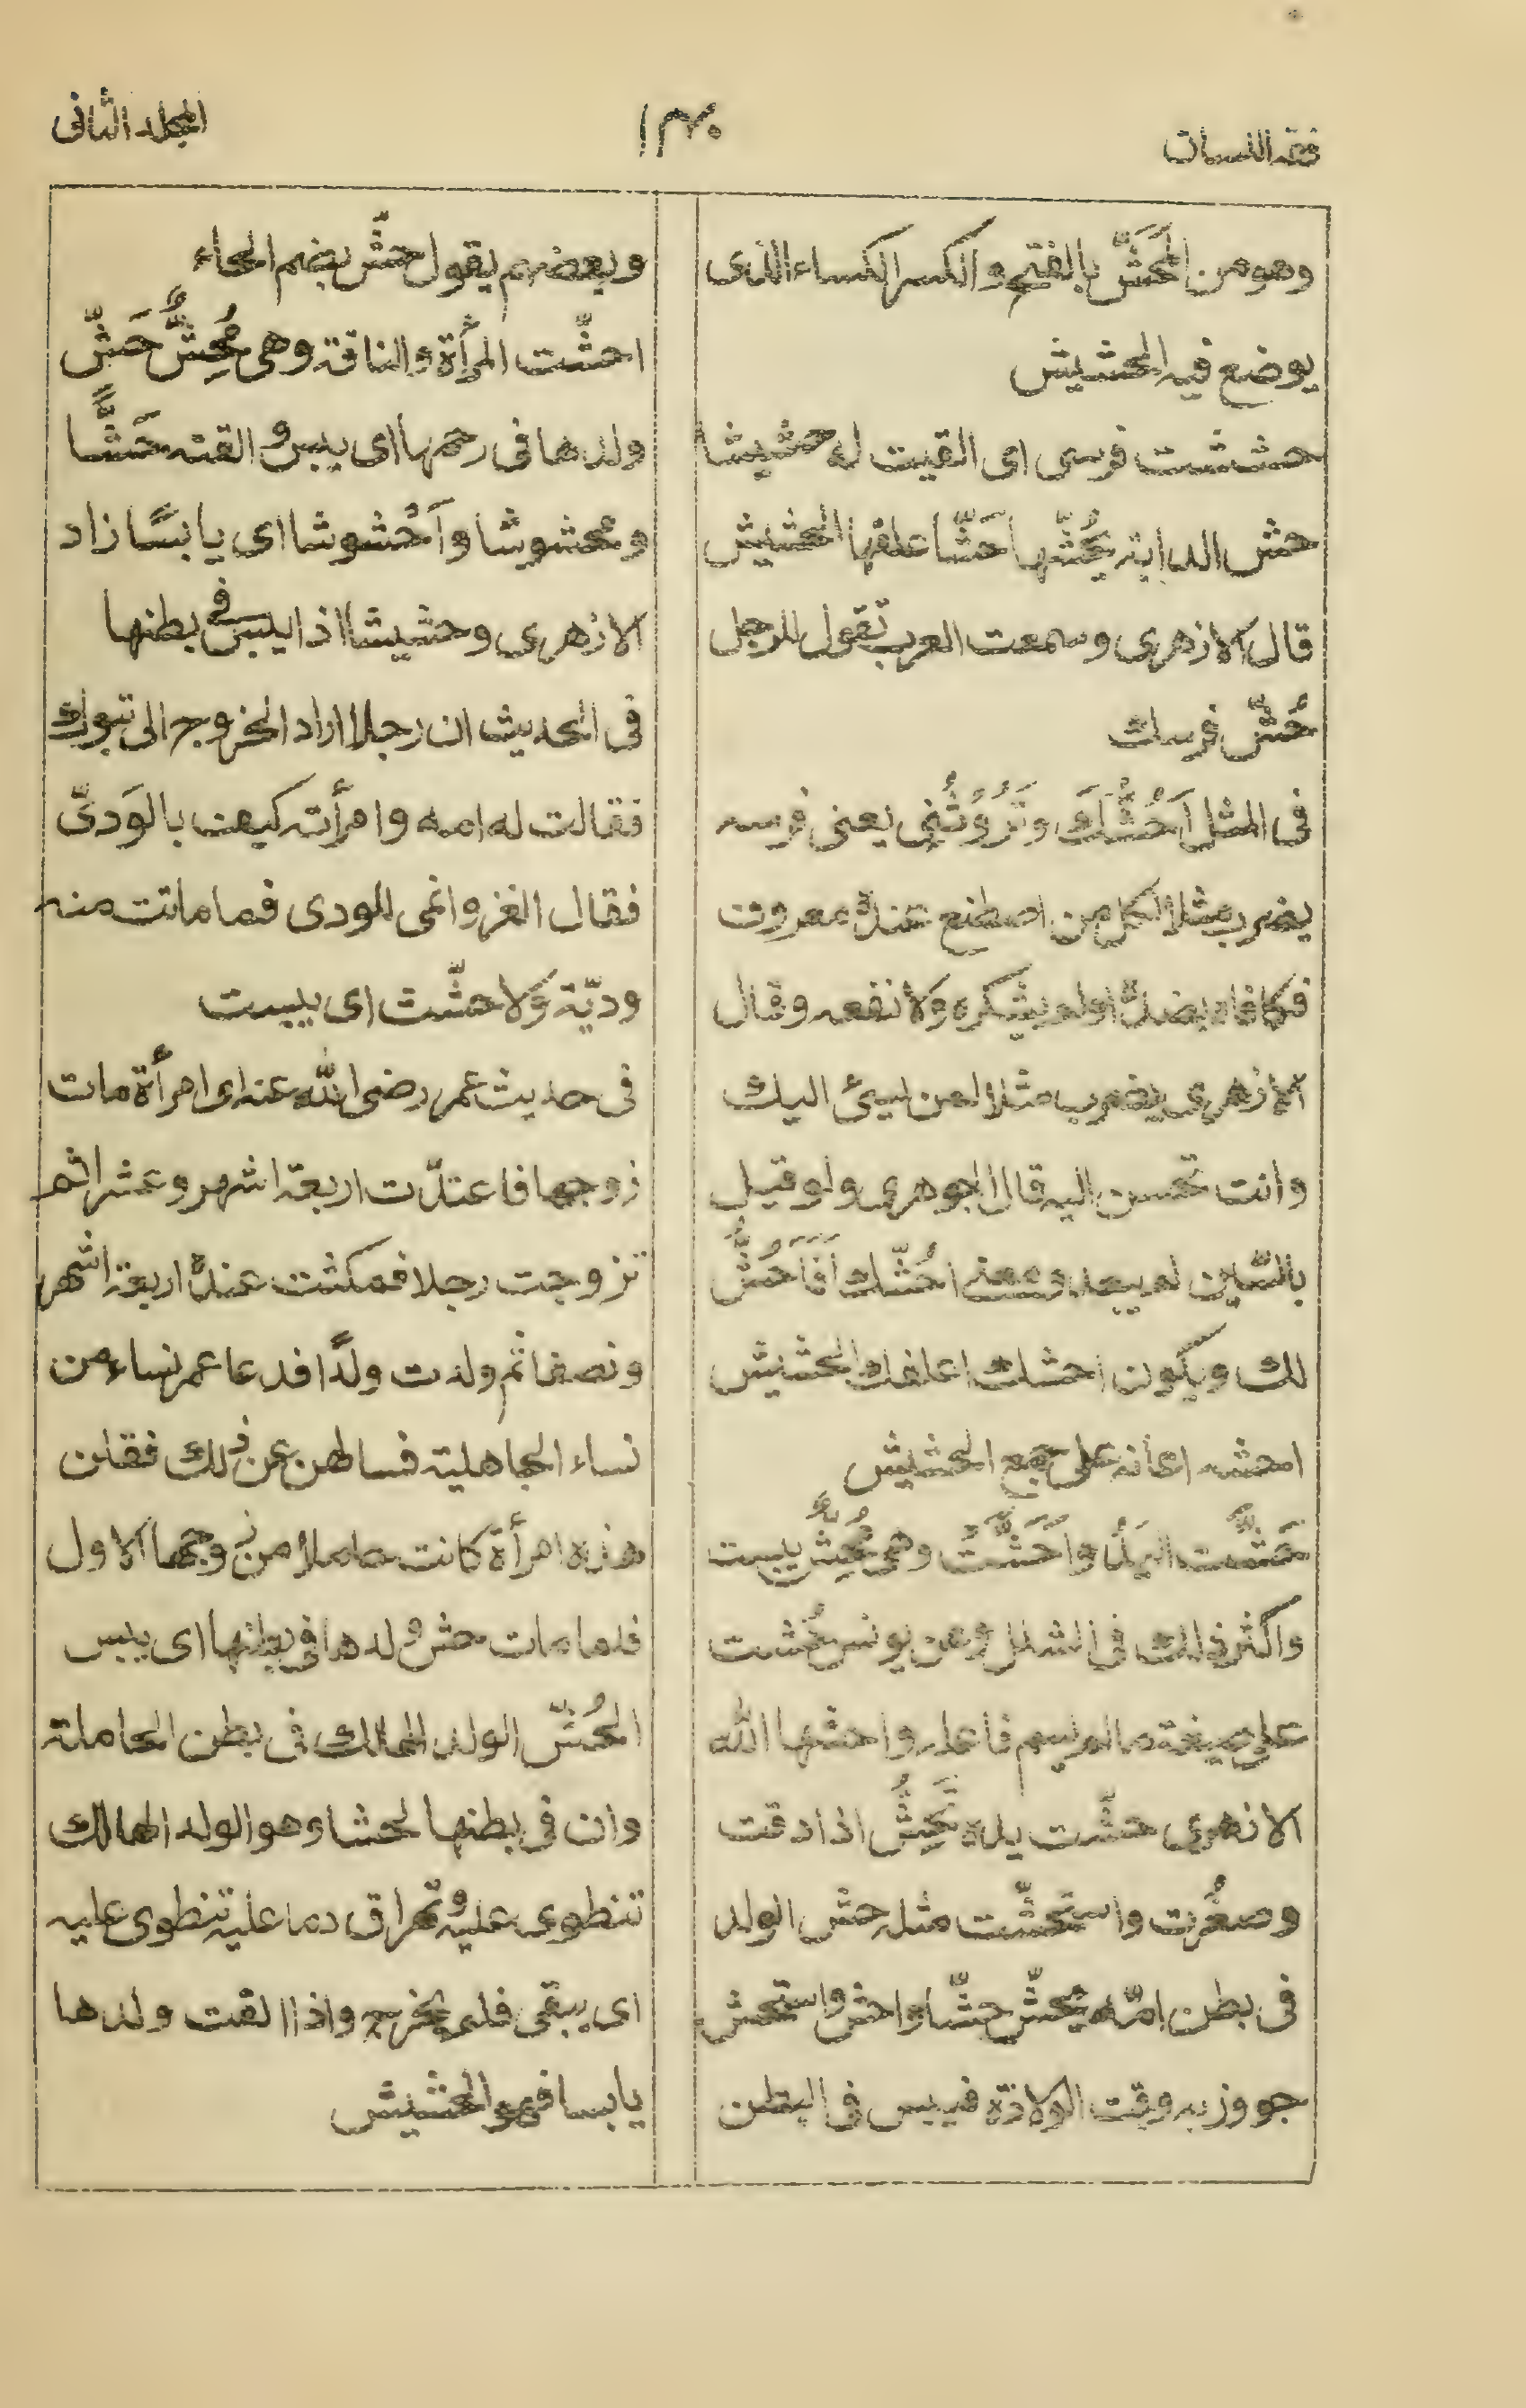 فقه اللسان
المجلد الثانی
وهو من المَحَشّ بالفتح والکسر الکساء الذی
یوضع فیه الحشیش
حششت فرسی ای القیت له حشیشا
حش الدابة یحُشّها حَشّا علفها الحشیش
قال الازهری وسمعت العرب تقول للرجل
حُشّ فرسك
فی المثل اَحُشُّكَ وتَرُوثُنی یعنی فرسه
یضرب مثلا لکل من اصطنع عنده معروف
فکافاه بضده او لم یشکره ولا نفعه وقال
الازهری یضرب مثلا لمن یسیئ الیك
وانت تحسن الیه قال الجوهری ولو قیل
بالسّین لم یبعد ومعنی احُشّك اَفَاَحُشُّ
لك ویکون احشك اعلفك الحشیش
احشه اعانه علی جمع الحشیش
حَشَّت الیدُ واَحَشَّت وهی مُحِشٌّ یبست
واکثر ذلك فی الشلل وعن یونس حُشت
علی صیغة ما لم یسم فاعله واحشها الله
الازهری حشّت یده تَحِشُّ اذا دقت
وصغُرت واستحشّت مثله حش الولد
فی بطن امّه یحشّ حشّا واحش واستحش
جووز به وقت الولادة فیبس فی البطن
وبعضهم یقول حشّ بضم الحاء
احشّت المرأة والناقة وهی مُحِشٌّ حَشّ
ولدها فی رحمها ای یبس و القته حَشًّا
ومحشوشا واَحْشوشا ای یابسًا زاد
الازهری وحشیشا اذا یبس فی بطنها
فی الحدیث ان رجلا اراد الخروج الی تبوك
فقالت له امه وامرأته کیف بالوَدیّ
فقال الغزو انمی للودی فما ماتت منه
ودیّة ولا حشّت ای یبست
فی حدیث عمر رضی الله عنه ای امرأة مات
زوجها فاعتدّت اربعة اشهر وعشرا ثم
تزوجت رجلا فمکثت عنده اربعة اشهر
ونصفا ثم ولدت ولدًا فدعا عمر نساء من
نساء الجاهلیة فسالهن عن ذلك فقلن
هذه امرأة کانت حاملا من زوجها الاول
فلما مات حش ولدها فی بطنها ای یبس
الحُشّ الولد الهالك فی بطن الحاملة
وان فی بطنها لحشا وهو الولد الهالك
تنطوی علیه وتهراق دما علیه تنطوی علیه
ای یبقی فلم یخرج واذا القت ولدها
یابسا فهو الحشیش